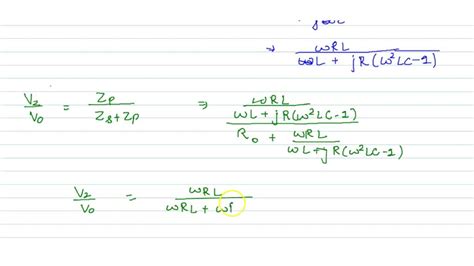 ⇒ ωRL / (ωL + jR(ω²LC-1))
V₂/V₀ = Zp/(Zs+Zp) ⇒ (ωRL / (ωL+jR(ω²LC-1))) / (R₀ + ωRL / (ωL+jR(ω²LC-1)))
V₂/V₀ = ωRL / (ωRL + ω